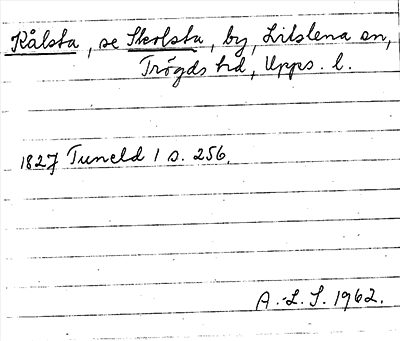 Kålsta, se Skolsta, by, Litslena sn,
Trögds hd, Upps. l.
1827 Tuneld 1 s. 256.
A.-L. S. 1962.